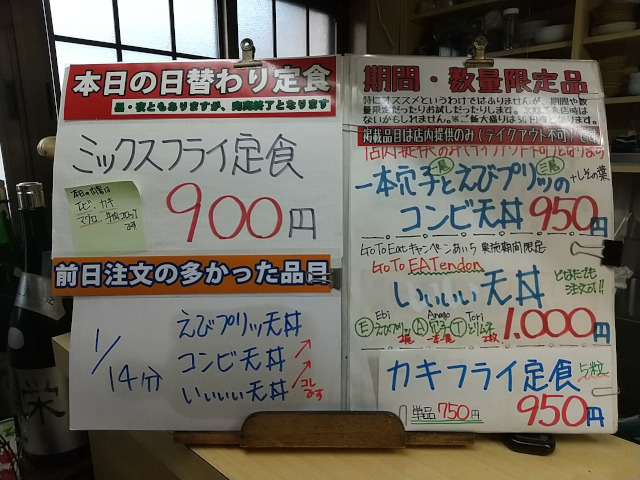 本日の日替わり定食
昼・夜ともありますが、肉完終了となります
ミックスフライ定食
本日の内容は
エビ、カキ
マグロ
です
900円
前日注文の多かった品目
1/14分
えびプリッツ天丼
コンビ天丼
いいいい天丼
コレ
です
期間・数量限定品
特にオススメというわけではありませんが、期間や数
量限定だったりお試しだったりします。次回ご来店時は
ないかもしれません。※ご飯大盛りは50円増となります。
掲載品目は店内提供のみ(テイクアウト不可)です
一本穴子とえびプリッツの
二尾
三尾
+しその葉
コンビ天丼 950円
Go To Eatキャンペーンあいち 実施期間限定
Go To EATendon
いいいい天丼
どなたでも
注文可!!
Ebi
Anago
Tori
E えびプリッツ 2尾 A 穴子 一本 T とりムネ 2枚
1,000円
カキフライ定食 5粒
単品 750円
950円
栄